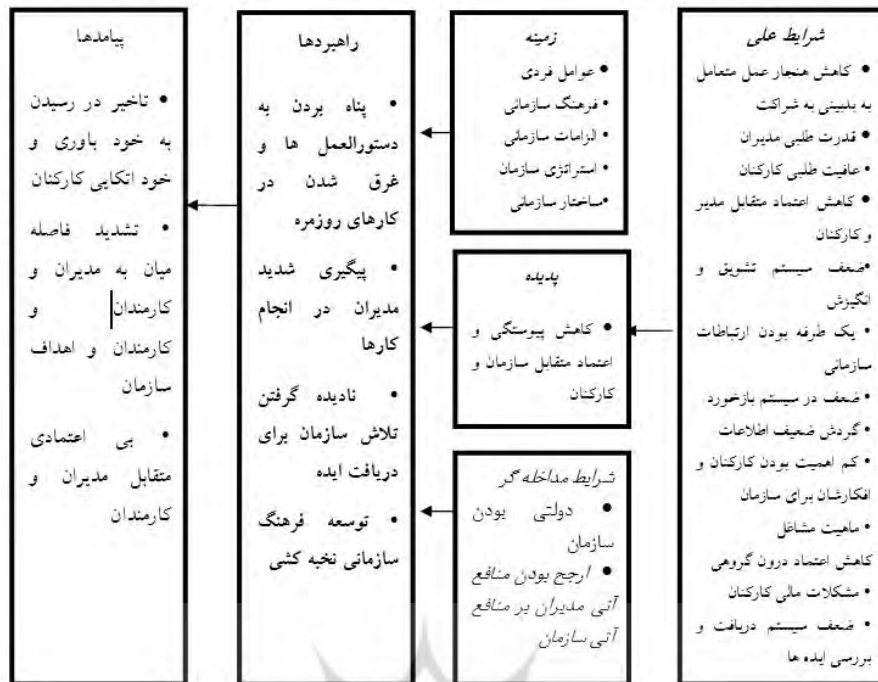 شرایط علی
• کاهش هنجار عمل متعامل
به بدبینی به شراکت
• قدرت طلبی مدیران
• عافیت طلبی کارکنان
• کاهش اعتماد متقابل مدیر
و کارکنان
•ضعف سیستم تشویق و
انگیزش
• یک طرفه بودن ارتباطات
سازمانی
• ضعف در سیستم بازخورد
• گردش ضعیف اطلاعات
• کم اهمیت بودن کارکنان و
افکارشان برای سازمان
• ماهیت مشاغل
کاهش اعتماد درون گروهی
• مشکلات مالی کارکنان
• ضعف سیستم دریافت و
بررسی ایده ها
زمینه
• عوامل فردی
• فرهنگ سازمانی
• الزامات سازمانی
• استراتژی سازمان
•ساختار سازمانی
پدیده
• کاهش پیوستگی و
اعتماد متقابل سازمان و
کارکنان
شرایط مداخله گر
• دولتی بودن
سازمان
• ارجح بودن منافع
آنی مدیران بر منافع
آتی سازمان
راهبردها
• پناه بردن به
دستورالعمل ها و
غرق شدن در
کارهای روزمره
• پیگیری شدید
مدیران در انجام
کارها
• نادیده گرفتن
تلاش سازمان برای
دریافت ایده
• توسعه فرهنگ
سازمانی نخبه کشی
پیامدها
• تاخیر در رسیدن
به خود باوری و
خود اتکایی کارکنان
• تشدید فاصله
میان به مدیران و
کارمندان و
کارمندان و اهداف
سازمان
• بی اعتمادی
متقابل مدیران و
کارمندان